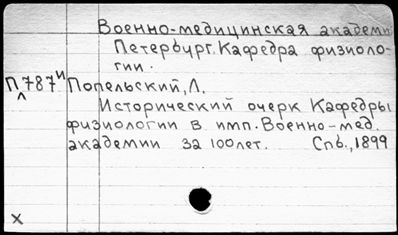 Военно-медицинская академи
Петербург. Кафедра физиоло-
гии.
П787и Попельский, Л.
Исторический очерк Кафедры
физиологии в имп. Военно-мед.
академии за 100 лет. Спб., 1899
x